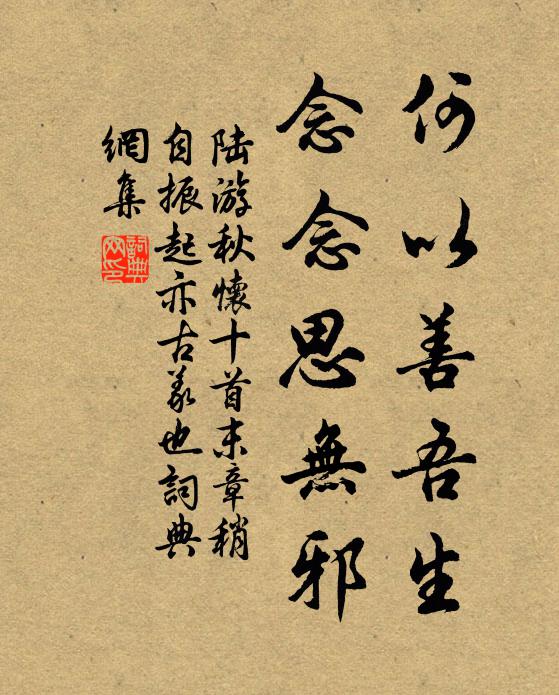 何以善吾生
念念思無邪
陆游秋懷十首末章稍
自振起亦古義也詞典
網集
詞典
网印